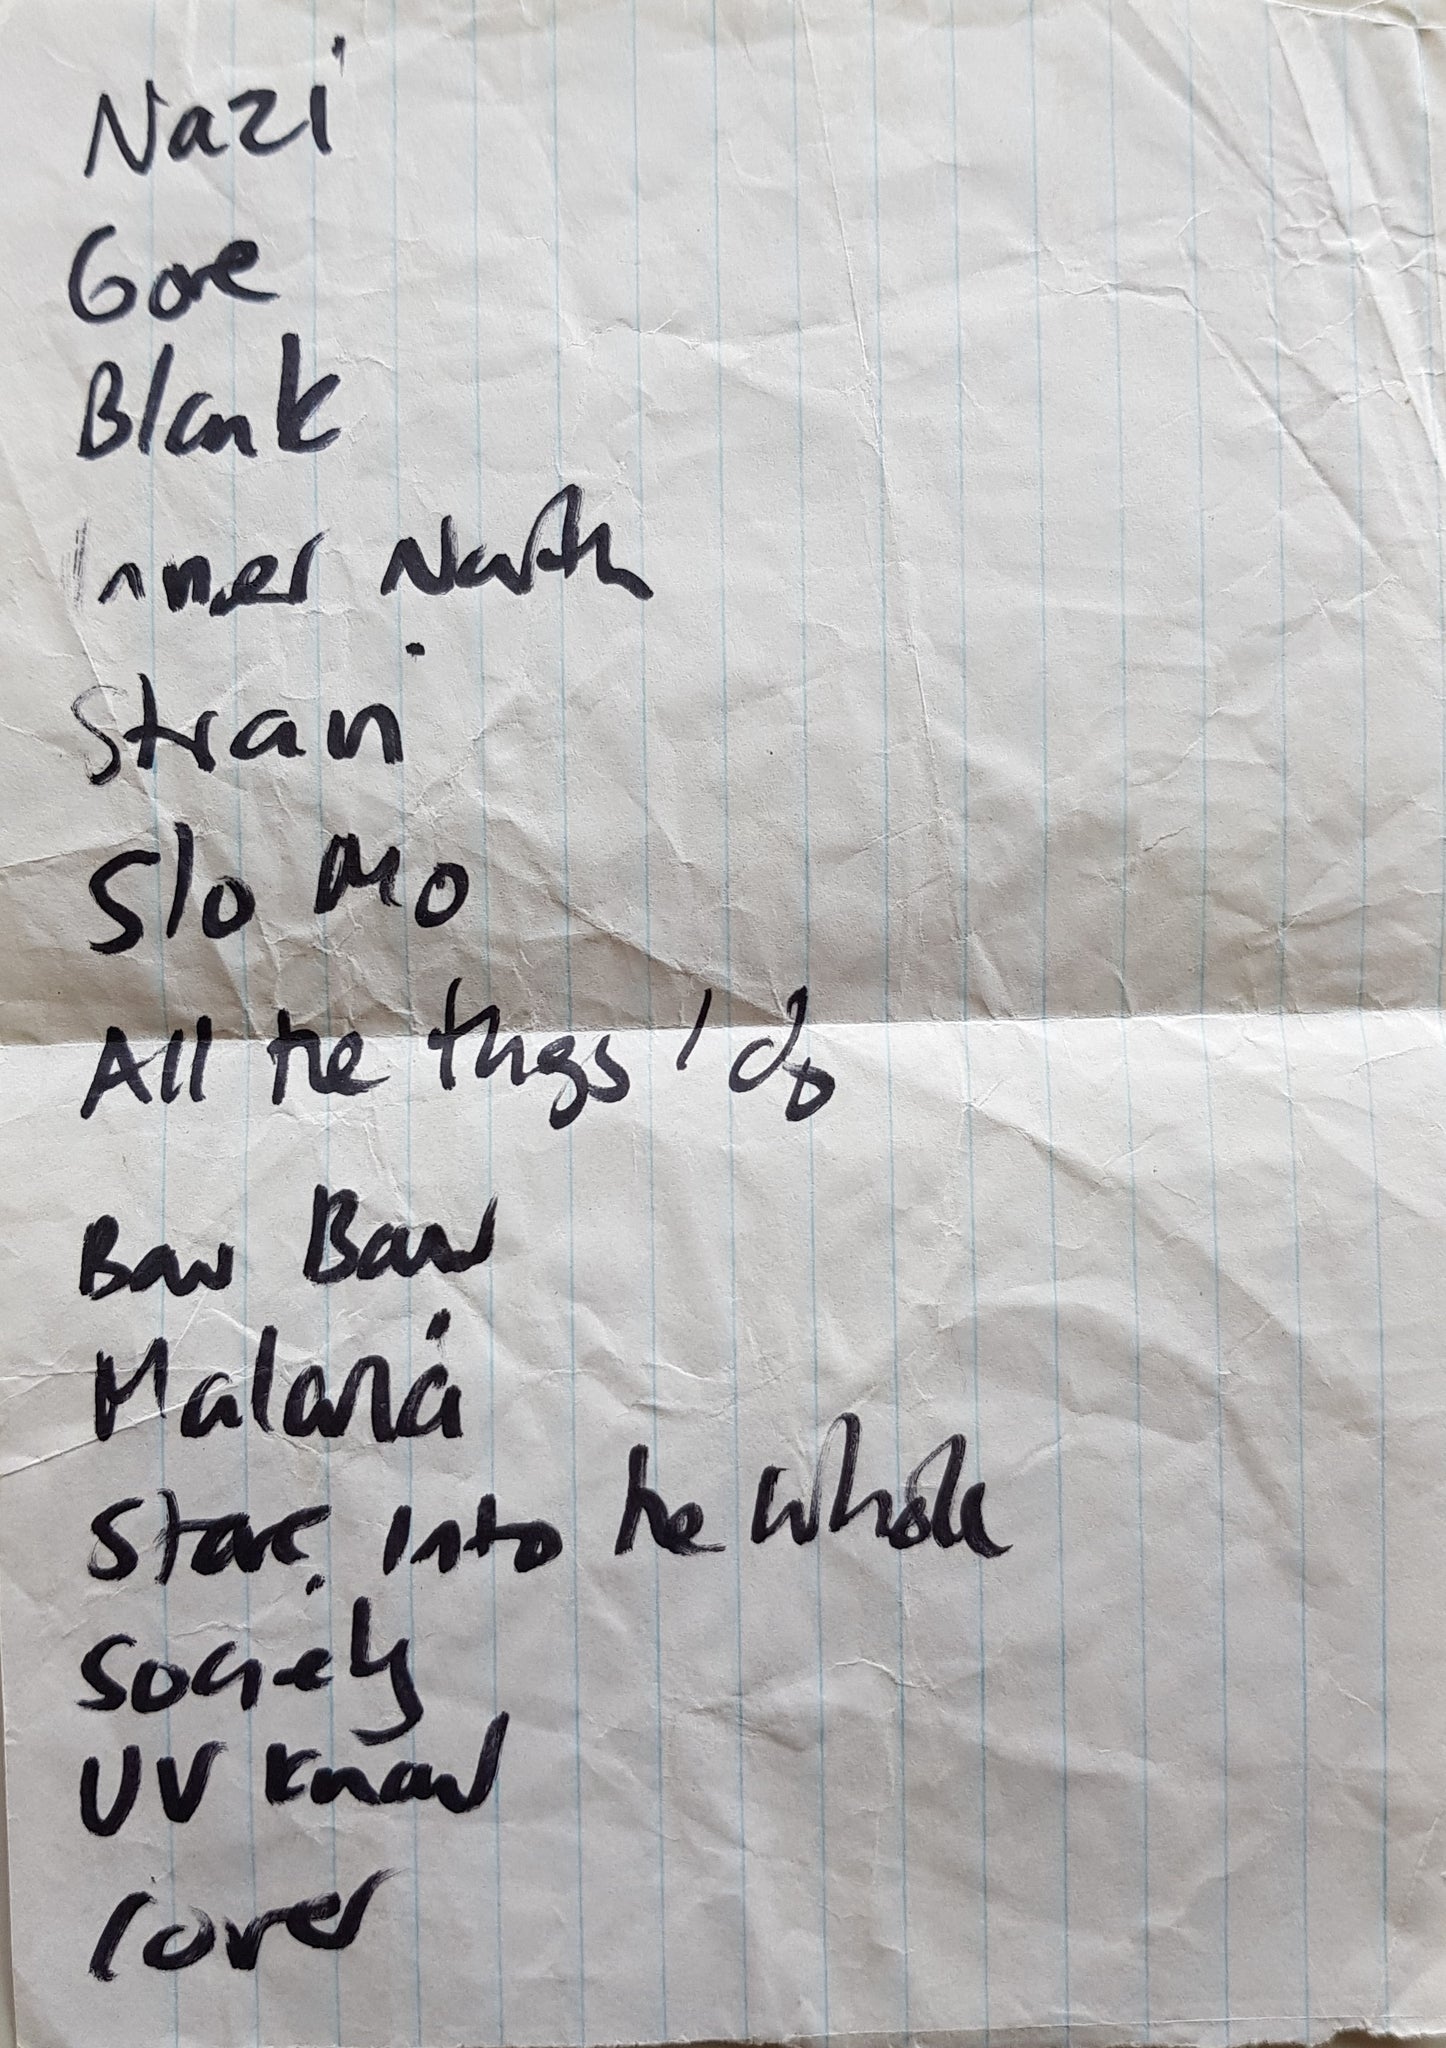 Nazi
Gore
Blank
Inner North
Strain
Slo Mo
All the things I do
Baw Baw
Malaria
Stare into the whole
Society
UV Know
Cover